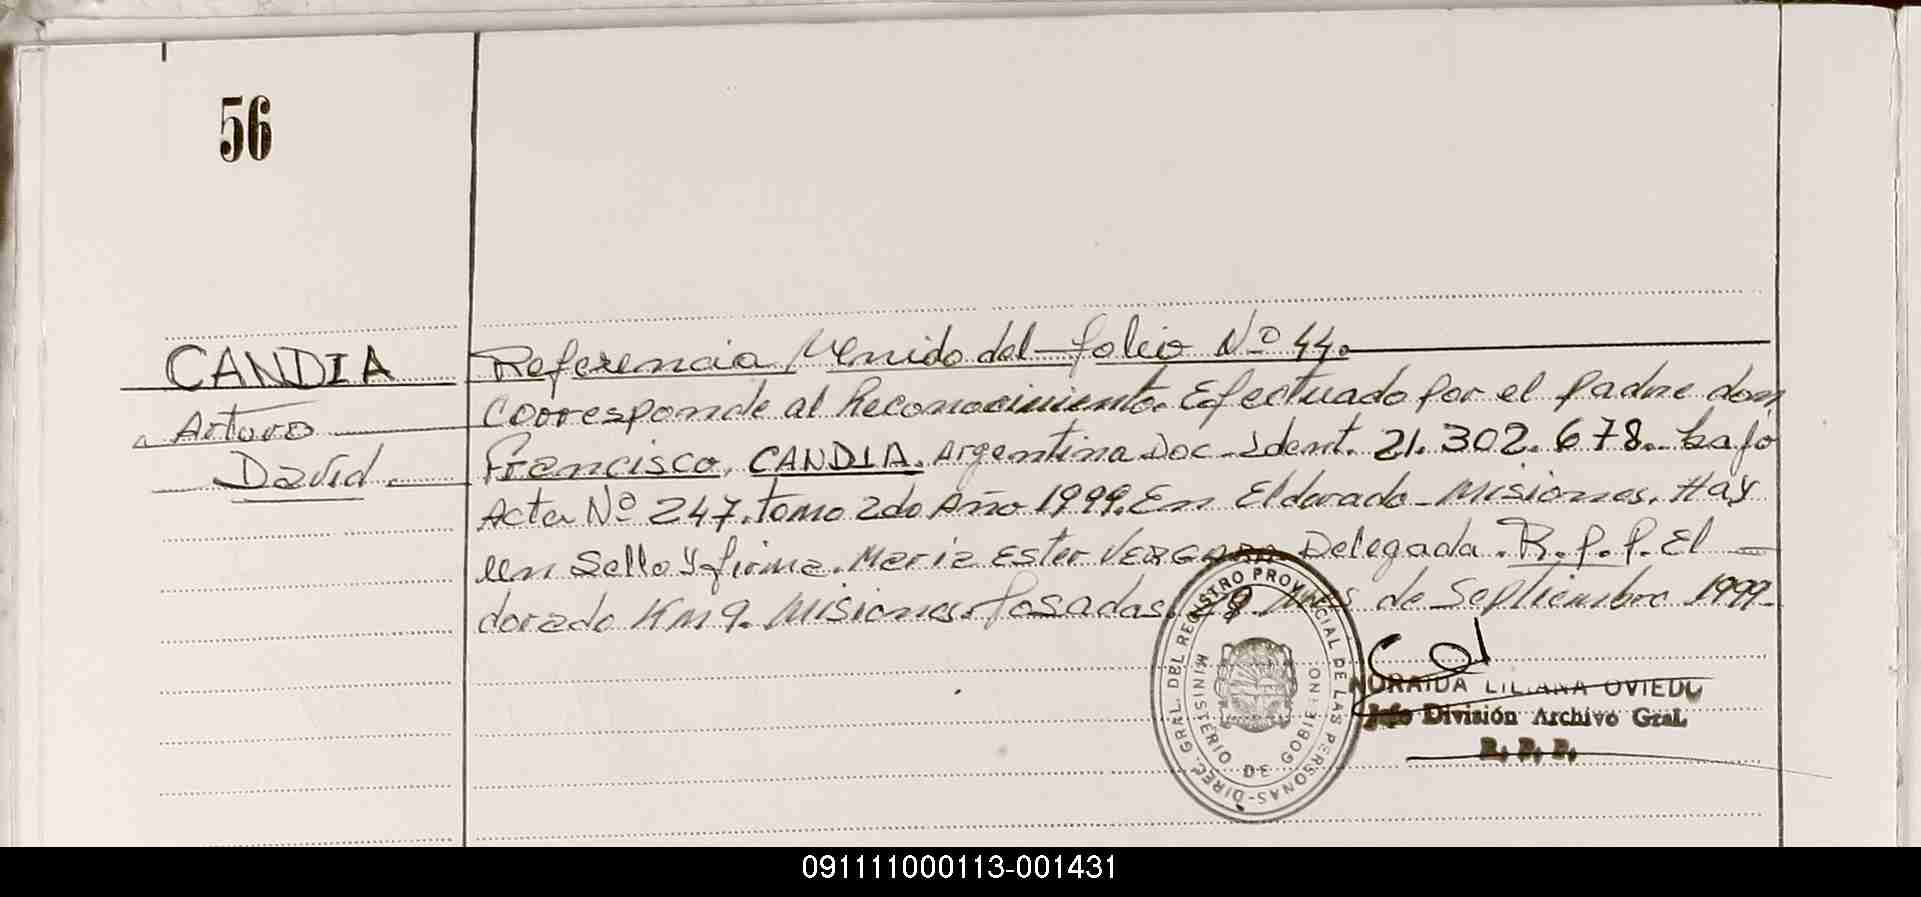 56
CANDIA
Arturo
David.
Referencia Venido del folio Nº 44.
Corresponde al Reconocimiento. Efectuado por el padre don
Francisco, CANDIA. Argentina Doc. Ident. 21.302.678. bajo
Acta Nº 247. tomo 2do Año 1999. En Eldorado - Misiones. Hay
un Sello y firma. Maria Ester VERGARA Delegada. R.P.P. El
dorado Km 9. Misiones. Posadas. de Septiembre 1999.
DIREC. GRAL. DEL REGISTRO PROVINCIAL DE LAS PERSONAS-
MINISTERIO DE GOBIERNO
NORAIDA LILIANA OVIEDO
Jefe División Archivo Gral.
R. P. P.
091111000113-001431